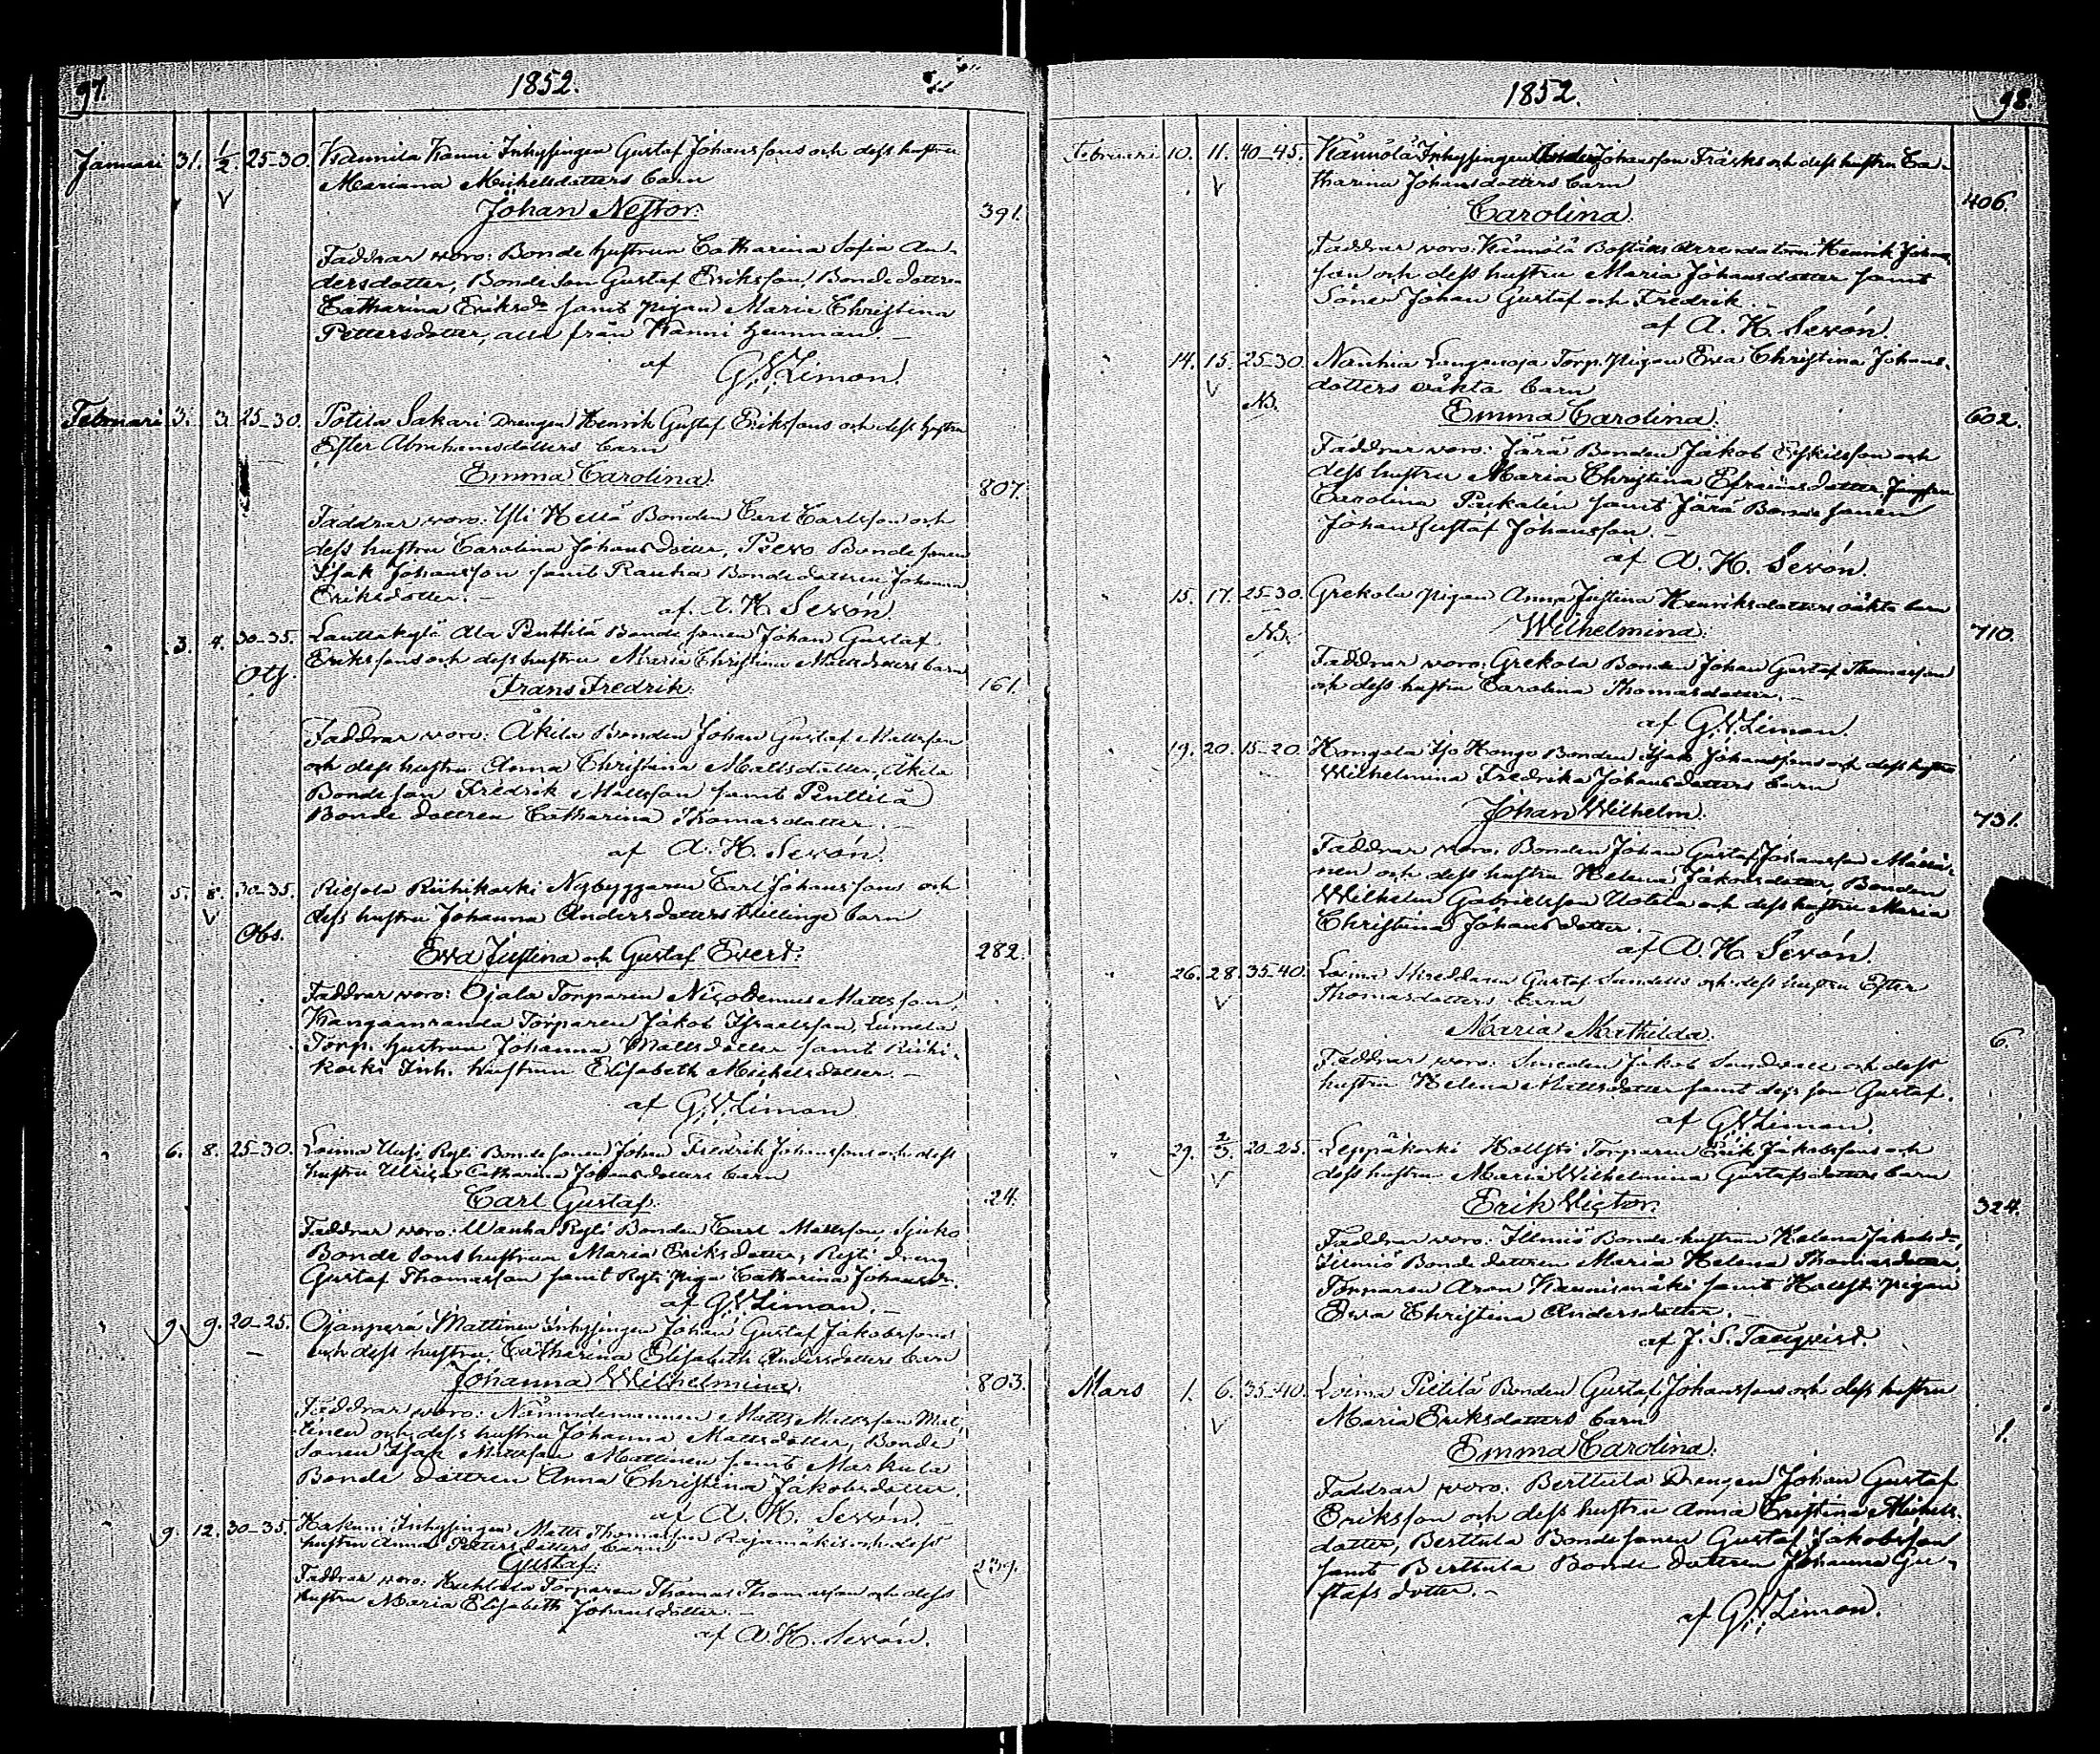 97.
1852.
Januari 31. 1/2. 25-30. Kaunila Kanni Inhysingen Gustaf Johanssons och dess hustru
Mariana Michelsdotters barn
Johan Nestor. 391.
Faddrar woro: Bonde hustrun Catharina Sofia An-
dersdotter, Bondeson Gustaf Eriksson, Bonde dottren
Catharina Eriksdr samt pigan Maria Christina
Pettersdotter, alla från Kanni hemman. –
af G.W. Limon.
Februari 3. 3. 25-30. Potila Sakari Drengen Henrik Gustaf Erikssons och dess hustru
Ester Abrahamsdotters barn
Emma Carolina. 807.
Faddrar woro: Yli Kellä Bonden Carl Carlsson och
dess hustru Carolina Johansdotter, Bonde sonen
Isak Johansson samt Rauha Bondedottren Johanna
Eriksdotter. –
af A. H. Sevón.
" 3. 4. 30-35. Lauttakylä Ala Penttilä Bonde sonen Johan Gustaf
Erikssons och dess hustru Maria Christina Mattsdotters barn
Frans Fredrik. 161.
Faddrar woro: Åkila Bonden Johan Gustaf Mattsson
och dess hustru Anna Christina Mattsdotter, Åkila
Bondeson Fredrik Mattsson samt Penttilä
Bonde dottren Catharina Thomasdotter. –
af A. H. Sevón.
" 5. 8. 30-35. Riihikoski Nybyggaren Carl Johanssons och
dess hustru Johanna Andersdotters Twillinge barn
Obs.
Ewa Justina och Gustaf Evert. 282.
Faddrar woro: Ojala Torparen Nicodemus Mattsson,
Kangaanranda Torparen Jakob Israelsson,
Torp. hustrun Johanna Mattsdotter samt Riihi-
koski Inh. hustrun Elisabeth Michelsdotter. –
af G.W. Limon
" 6. 8. 25-30. Loima Uusi Bonde sonen Johan Fredrik Johanssons och dess
hustru Ulrica Catharina Johansdotters barn
Carl Gustaf. 24.
Faddrar woro: Wanha Bonden Carl Mattsson,
Bonde sons hustrun Maria Eriksdotter, dreng
Gustaf Thomasson samt piga Catharina Johansdr.
af G.W. Limon. –
" 9. 9. 20-25. Ojanperä Mattinen Inhysingen Johan Gustaf Jakobssons
och dess hustru Catharina Elisabeth Andersdotters barn
Johanna Wilhelmina. 803.
Faddrar woro: Nämndemannen Matts Mattsson Mat-
tinen och dess hustru Johanna Mattsdotter, Bonde
sonen Isak Mattsson Mattinen samt Markula
Bonde dottren Anna Christina Jakobsdotter.
af A. H. Sevón. –
" 9. 12. 30-35. Inhysingen Matts Thomasson Rajamäkis och dess
hustru Anna Pettersdotters barn
Gustaf. 239.
Faddrar woro: Torparen Thomas Thomasson och dess
hustru Maria Elisabeth Johansdotter. –
af A. H. Sevón.
1852.
98.
Februari 10. 11. 40-45. Inhysingen Johansson Träsks och dess hustru Ca-
tharina Johansdotters barn
Carolina. 406.
Faddrar woro: Boställs Arrendatorn Henrik Johans-
son och dess hustru Maria Johansdotter samt
Söner Johan Gustaf och Fredrik.
af A. H. Sevón.
" 14. 15. 25-30. Torp. pigan Ewa Christina Johans-
dotters oäkta barn
NB.
Emma Carolina. 602.
Faddrar woro: Järä Bonden Jakob Eskilsson och
dess hustru Maria Christina Efraimsdotter, Jungfru
Carolina samt Järä Bonde sonen
Johan Gustaf Johansson. –
af A. H. Sevón.
" 15. 17. 25-30. Grekola pigan Anna Justina Henriksdotters oäkta barn
NB.
Wilhelmina. 710.
Faddrar woro: Grekola Bonden Johan Gustaf Thomasson
och dess hustru Carolina Thomasdotter. –
af G.W. Limon.
" 19. 20. 15-20. Kongola Iso Kongo Bonden Isak Johanssons och dess hustru
Wilhelmina Fredrika Johansdotters barn
Johan Wilhelm. 731.
Faddrar woro: Bonden Johan Gustaf Johansson
och dess hustru Helena Jakobsdotter, Bonden
Wilhelm Gabrielsson Uotila och dess hustru Maria
Christina Johansdotter. –
af A. H. Sevón.
" 26. 28. 35-40. Loima Skreddaren Gustaf Sundells och dess hustru Ester
Thomasdotters barn
Maria Mathilda. 6.
Faddrar woro: Smeden Jakob och dess
hustru Helena Mattsdotter samt dess son Gustaf.
af G.W. Limon.
" 29. 2/3. 20-25. Leppäkoski Hollsti Torparen Erik Jakobssons och
dess hustru Maria Wilhelmina Gustafsdotters barn
Erik Victor. 324.
Faddrar woro: Bonde hustrun Helena Jakobsdr,
Bonde dottren Maria Helena Thomasdotter,
Torparen Aron Kaunismäki samt Hollsti pigan
Ewa Christina Andersdotter. –
af J. S. Tanqvist.
Mars 1. 6. 35-40. Loima Pietilä Bonden Gustaf Johanssons och dess hustru
Maria Eriksdotters barn
Emma Carolina. 1.
Faddrar woro: Berttula Drengen Johan Gustaf
Eriksson och dess hustru Anna Cristina Michels-
dotter, Berttula Bonde sonen Gustaf Jakobsson
samt Berttula Bonde dottren Johanna Gu-
stafsdotter. –
af G.W. Limon.